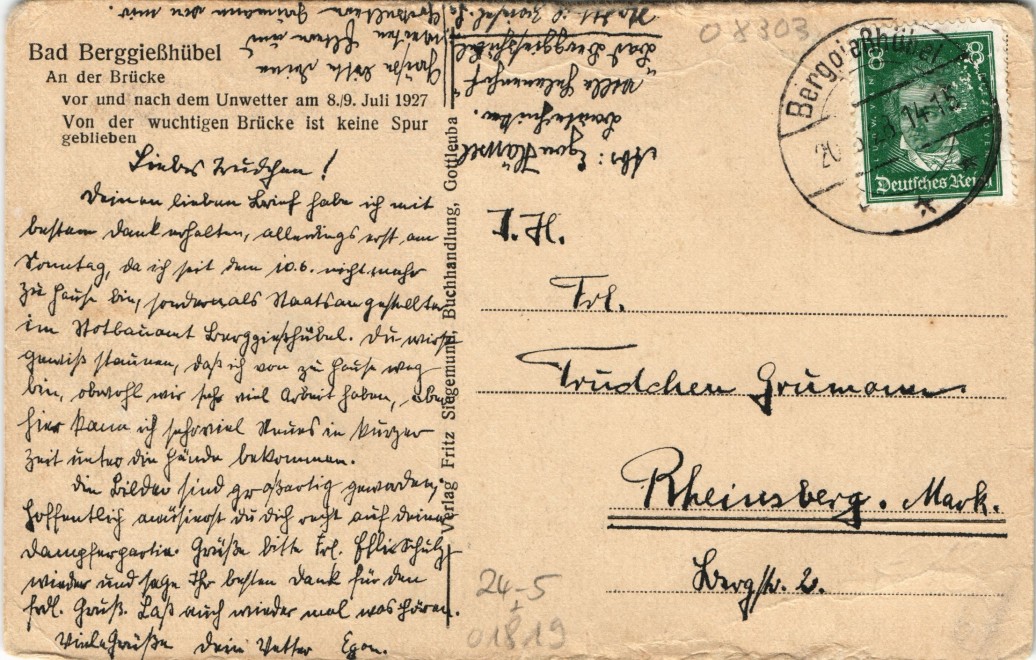 Bad Berggießhübel
An der Brücke
vor und nach dem Unwetter am 8./9. Juli 1927
Von der wuchtigen Brücke ist keine Spur
geblieben
Liebes Trudchen!
Deinen lieben Brief habe ich mit
bestem Dank erhalten, allerdings erst am
Sonntag, da ich seit dem 10.6. nicht mehr
zu Hause bin, sondern als Staatsangestellter
im Notbauamt Berggießhübel. Du wirst
gewiß staunen, daß ich von zu Hause weg
bin, obwohl wir sehr viel Arbeit haben, aber
hier kann ich sehr viel Neues in kurzer
Zeit unter die Hände bekommen.
Die Bilder sind großartig geworden,
hoffentlich amüsierst du dich recht auf deiner
Dampferpartie. Grüße bitte Frl. Schulz
wieder und sage Ihr besten Dank für den
frdl. Gruß. Laß auch wieder mal was hören.
Viele Grüße Dein Vetter Egon.
Grüße bitte Deine
werten Eltern und
Großeltern Grümann von mir.
Abs: Egon
Bautechniker.
Bad Berggießhübel
Verlag Fritz Siegemund, Buchhandlung, Gottleuba
08303
Berggießhübel
20. 14-15
8 8
Deutsches Reich
I. H.
Frl.
Trudchen Grümann.
Rheinsberg. Mark.
Bergstr. 2.
24-5
01819